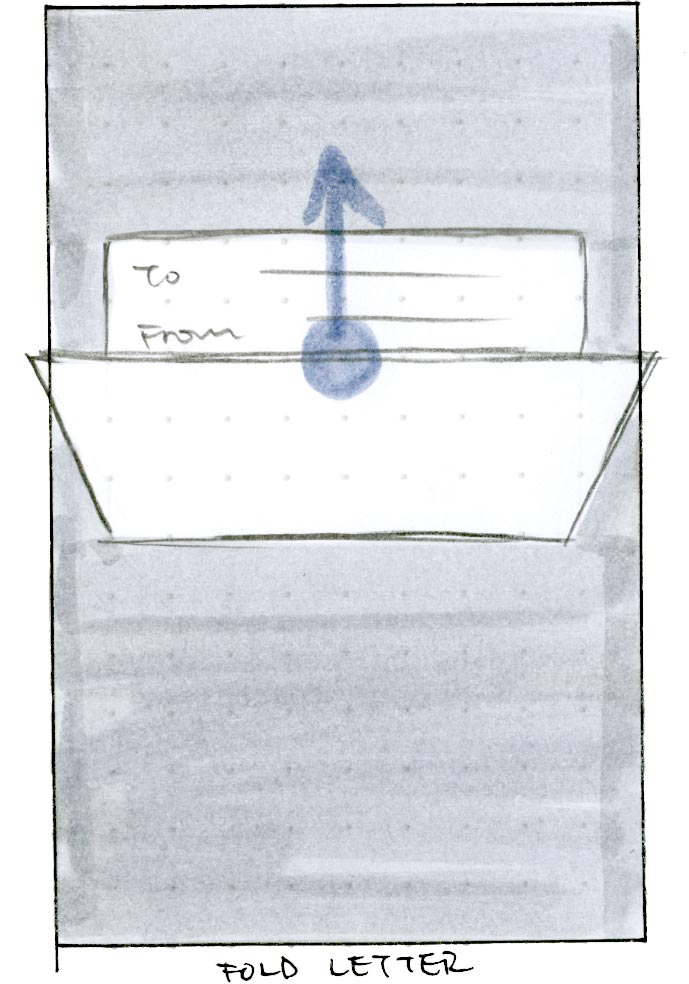 To
From
FOLD LETTER